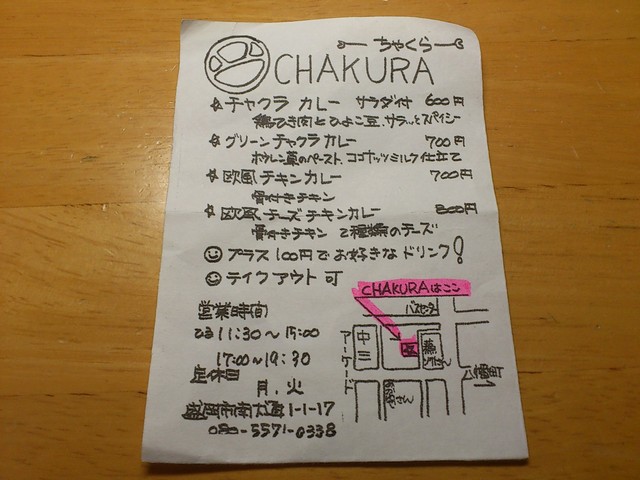 ちゃくら
CHAKURA
チャクラ カレー サラダ付 600円
鶏ひき肉とひよこ豆.サラッとスパイシー
グリーンチャクラカレー 700円
ホウレン草のペースト ココナッツミルク仕立て
欧風チキンカレー 700円
骨付きチキン
欧風チーズチキンカレー 800円
骨付きチキン 2種類のチーズ
プラス100円でお好きなドリンク!
テイクアウト可
CHAKURAはここ
バスセンター
営業時間
11:30〜15:00
17:00〜19:30
定休日
月.火
1-1-17
080-5571-0338
アーケード
中三
さん
さん
八幡町